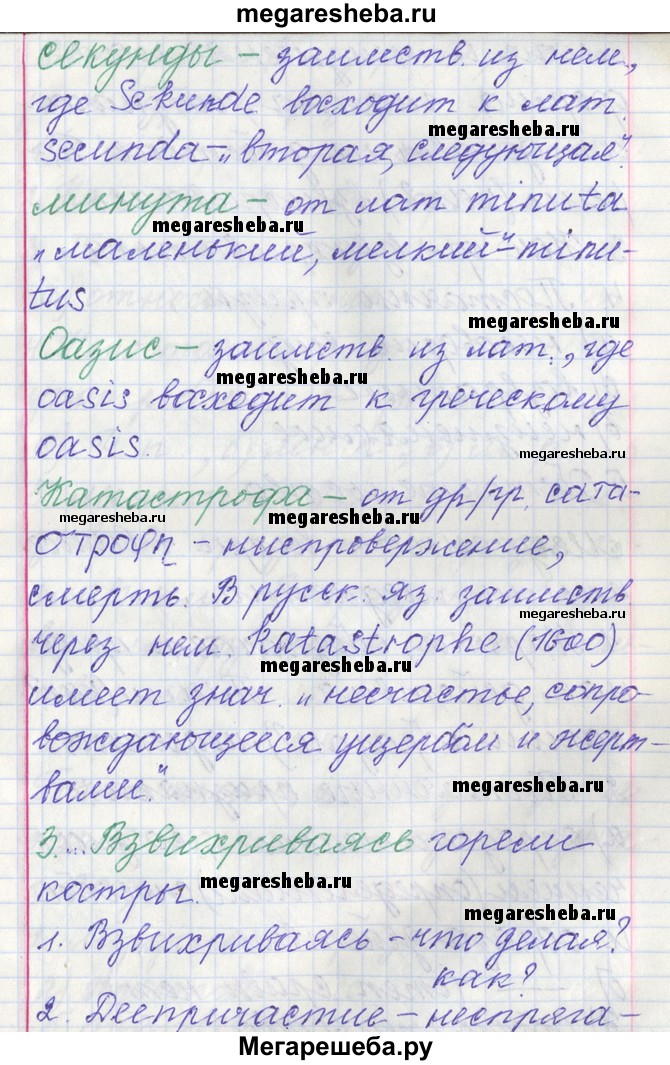 megaresheba.ru
секунды – заимств. из нем,
где Sekunde восходит к лат.
megaresheba.ru
secunda – „вторая, следующая".
минута – от лат minuta
megaresheba.ru
„маленький, мелкий" – minu-
tus
megaresheba.ru
Оазис – заимств. из лат., где
megaresheba.ru
oasis восходит к греческому
oasis.
megaresheba.ru
Катастрофа – от др/гр. ката-
megaresheba.ru
megaresheba.ru
отрофη – ниспровержение,
смерть. В русск. яз. заимств.
megaresheba.ru
через нем. katastrophe (1600)
megaresheba.ru
имеет знач. „несчастье, сопро-
вождающееся ущербом и жерт-
вами".
megaresheba.ru
3. ...Взвихриваясь горели
костры.
megaresheba.ru
megaresheba.ru
1. Взвихриваясь – что делая?
как?
2. Деепричастие – неспряга-
Мегарешеба.ру